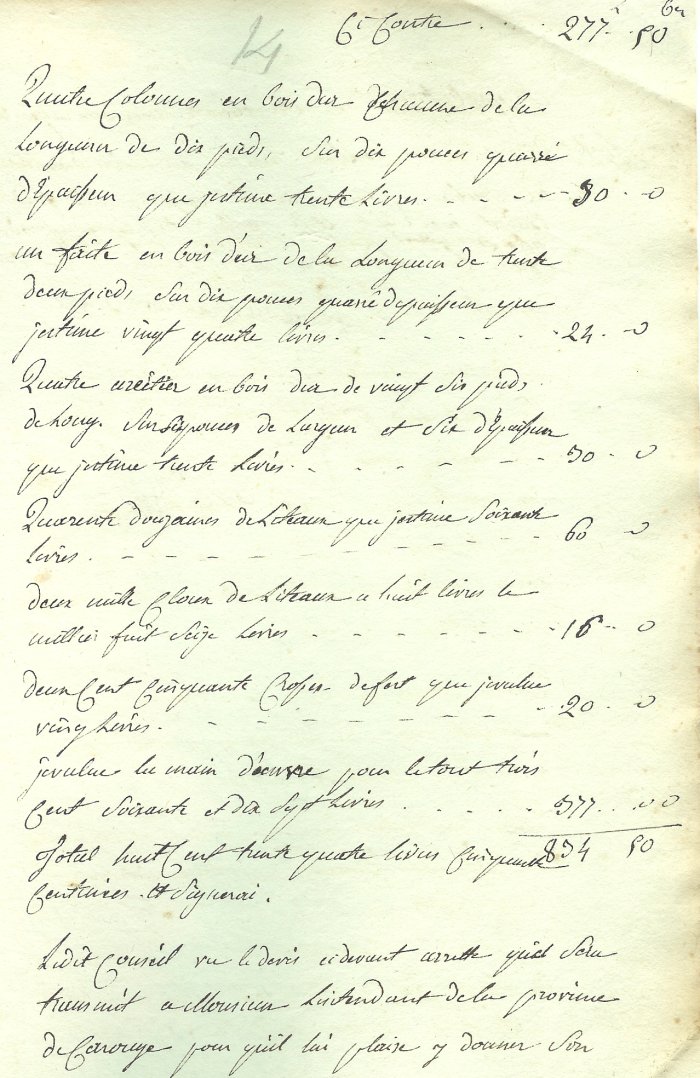 14
Ci Contre . . . . 277 50
Quatre Colonnes en bois dur de la
Longueur de dix pieds, sur dix pouces quarré
d'Epaisseur que jestime trente Livres. - - - - 30 - 0
un faite en bois dur de la Longueur de trente
deux pieds sur dix pouces quarré depaisseur que
jestime vingt quatre livres. - - - - 24 - 0
Quatre arêtier en bois dur de vingt six pieds
de Long. sur six pouces de Largeur et six d'Epaisseur
que jestime trente Livres. - - - - 30 - 0
Quarente douzaines de Liteaux que jestime Soixante
livres. - - - - 60 - 0
deux mille Cloux de Liteaux a huit livres le
millier fait Seize Livres - - - - 16 - 0
deux Cent Cinquante de fert que jevalue
vingt Livres. - - - - 20 - 0
jevalue la main d'œuvre pour letout trois
Cent Soixante et dix Sept Livres . . . . 377 . . 00
Total huit Cent trente quatre livres Cinquante 834 50
Centaines. Et Signerai.
Ledit Conseil vu le devis cidevant arrette quil Sera
transmit a Monsieur Lintendant de la province
de Carouge pour quil lui plaise y donner Son